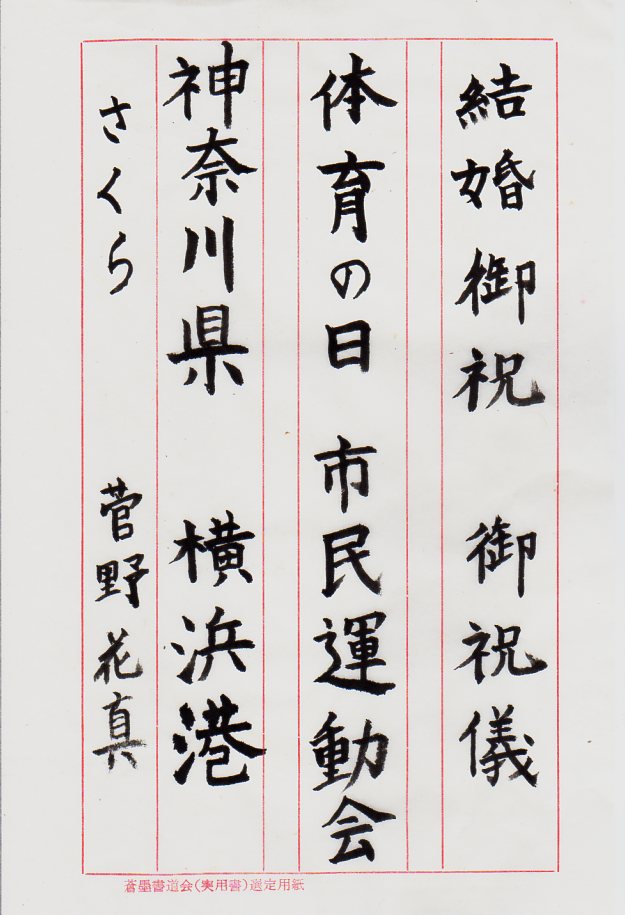 結婚御祝 御祝儀
体育の日 市民運動会
神奈川県 横浜港
さくら 菅野花真
蒼墨書道会(実用書)選定用紙